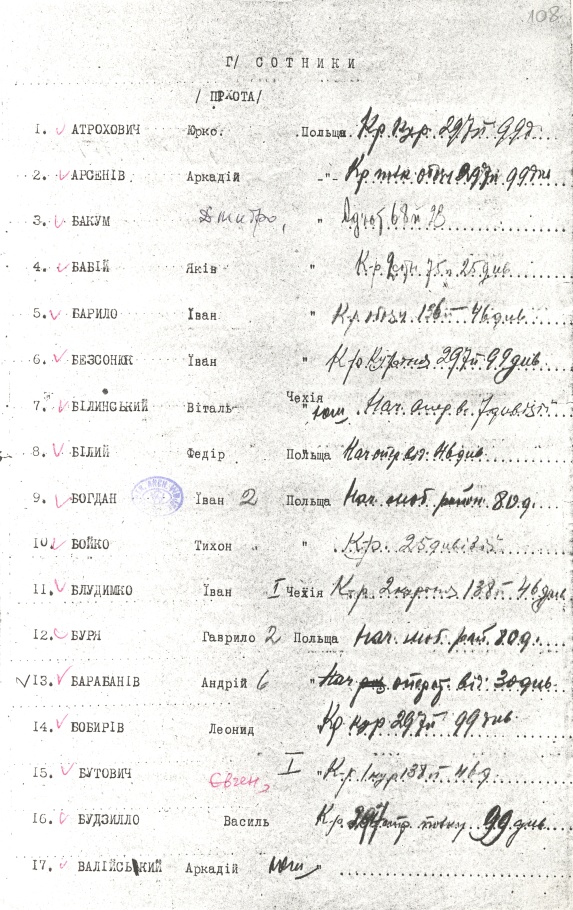 108
Г/ СОТНИКИ
/ ПІХОТА/
1. АТРОХОВИЧ Юрко. Польща Кр. кур. 297п 99д.
2. АРСЕНІВ Аркадій -"- Кр 297п 99див
3. БАКУМ Дмитро, " 68п
4. БАБІЙ Яків " К-р. 75п. 25див.
5. БАРИЛО Іван " К-р. 136п 46див.
6. БЕЗСОНЮК Іван " К-р Куріня 297п 99див
7. БІЛИНСЬКИЙ Віталь Чехія " Нач. опер. в. 7дивізії
8. БІЛИЙ Федір Польща Нач опер від. 46див.
9. БОГДАН Іван 2 Польща Нач. моб. район. 8.О.д.
10. БОЙКО Тихон " К-р. 25дивізії
11. БЛУДИМКО Іван I Чехія К-р. 2куреня 138п 46див.
12. БУРЯ Гаврило 2 Польща Нач. моб. рай. 8О.д.
13. БАРАБАНІВ Андрій 6 " Нач операт. від. 30див.
14. БОБИРІВ Леонид " Кр кур 297п 99див
15. БУТОВИЧ Євген, I " К-р. 1кур 138п 46д
16. БУДЗИЛЛО Василь К-р 297 99див.
17. ВАЛІЙСЬКИЙ Аркадій "